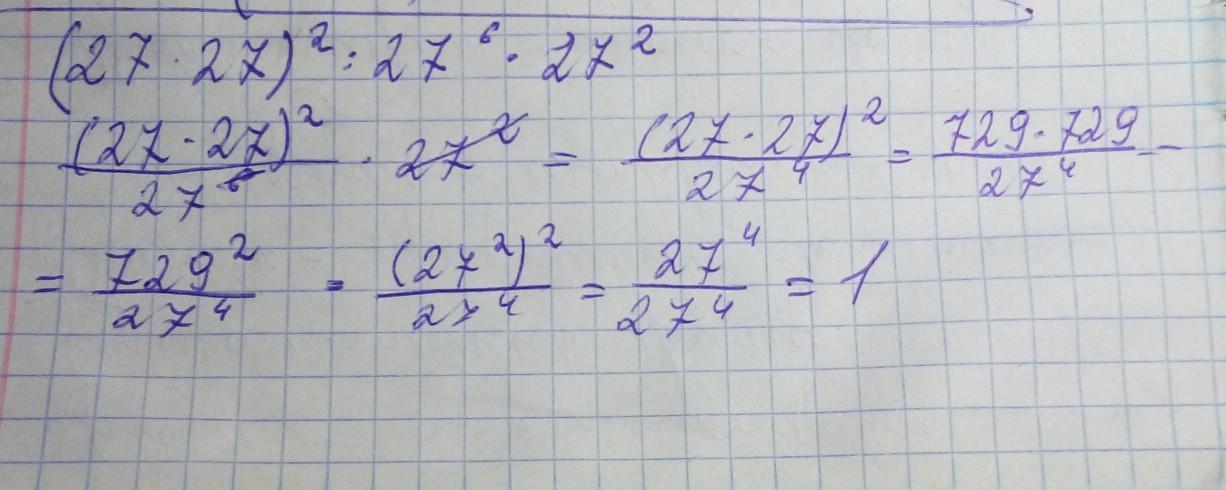 (27 · 27)² : 27⁶ · 27²
(27 · 27)² / 27⁶ · 27² = (27 · 27)² / 27⁴ = 729 · 729 / 27⁴ =
= 729² / 27⁴ = (27²)² / 27⁴ = 27⁴ / 27⁴ = 1